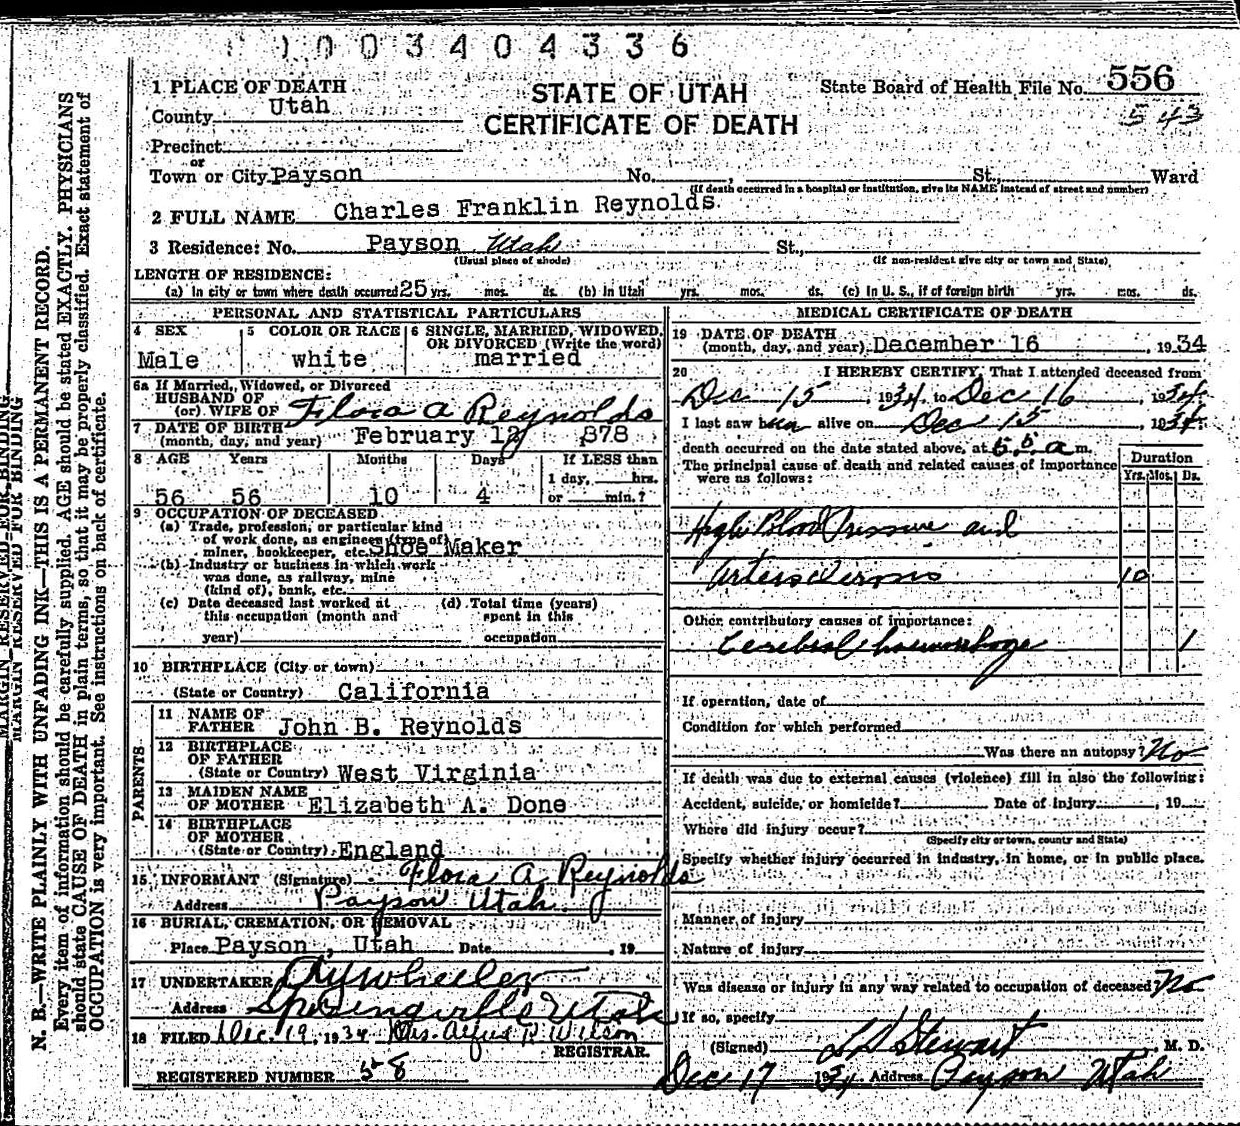 1003404336
1 PLACE OF DEATH
County Utah
STATE OF UTAH
CERTIFICATE OF DEATH
State Board of Health File No. 556
543
Precinct
or
Town or City Payson No. , St., Ward
(If death occurred in a hospital or institution, give its NAME instead of street and number)
2 FULL NAME Charles Franklin Reynolds
3 Residence: No. Payson Utah St.,
(Usual place of abode) (If non-resident give city or town and State)
LENGTH OF RESIDENCE:
(a) In city or town where death occurred 25 yrs. mos. ds. (b) In Utah yrs. mos. ds. (c) In U. S., if of foreign birth yrs. mos. ds.
PERSONAL AND STATISTICAL PARTICULARS
4 SEX 5 COLOR OR RACE 6 SINGLE, MARRIED, WIDOWED,
OR DIVORCED (Write the word)
Male white married
6a If Married, Widowed, or Divorced
HUSBAND OF
(or) WIFE OF Flora A Reynolds
7 DATE OF BIRTH
(month, day, and year) February 12 1878
8 AGE Years Months Days If LESS than
1 day, hrs.
56 56 10 4 or min.?
9 OCCUPATION OF DECEASED
(a) Trade, profession, or particular kind
of work done, as engineer (type of)
miner, bookkeeper, etc. Shoe Maker
(b) Industry or business in which work
was done, as railway, mine
(kind of), bank, etc.
(c) Date deceased last worked at (d) Total time (years)
this occupation (month and spent in this
year) occupation
10 BIRTHPLACE (City or town)
(State or Country) California
PARENTS
11 NAME OF
FATHER John B. Reynolds
12 BIRTHPLACE
OF FATHER
(State or Country) West Virginia
13 MAIDEN NAME
OF MOTHER Elizabeth A. Done
14 BIRTHPLACE
OF MOTHER
(State or Country) England
15 INFORMANT (Signature) Flora A Reynolds
Address Payson Utah.
16 BURIAL, CREMATION, OR REMOVAL
Place Payson, Utah Date , 19
17 UNDERTAKER Wheeler
Address Springville Utah
18 FILED Dec. 19, 1934 Mrs. R Wilson
REGISTRAR.
REGISTERED NUMBER 58
MEDICAL CERTIFICATE OF DEATH
19 DATE OF DEATH
(month, day, and year) December 16, 1934
20 I HEREBY CERTIFY, That I attended deceased from
Dec 15, 1934, to Dec 16, 1934.
I last saw him alive on Dec 15 1934.
death occurred on the date stated above, at a m.
The principal cause of death and related causes of importance
were as follows:
Duration
Yrs. Mos. Ds.
High Blood Pressure and
Arterosclerosis 10
Other contributory causes of importance:
Cerebral haemorrhage 1
If operation, date of
Condition for which performed
Was there an autopsy? No
If death was due to external causes (violence) fill in also the following:
Accident, suicide, or homicide? Date of injury , 19
Where did injury occur?
(Specify city or town, county and State)
Specify whether injury occurred in industry, in home, or in public place.
Manner of injury
Nature of injury
Was disease or injury in any way related to occupation of deceased? No
If so, specify
(Signed) L D Stewart M. D.
Dec 17 1934 Address Payson Utah
MARGIN RESERVED FOR BINDING
MARGIN RESERVED FOR BINDING
N. B.—WRITE PLAINLY WITH UNFADING INK—THIS IS A PERMANENT RECORD.
Every item of information should be carefully supplied. AGE should be stated EXACTLY. PHYSICIANS
should state CAUSE OF DEATH in plain terms, so that it may be properly classified. Exact statement of
OCCUPATION is very important. See instructions on back of certificate.